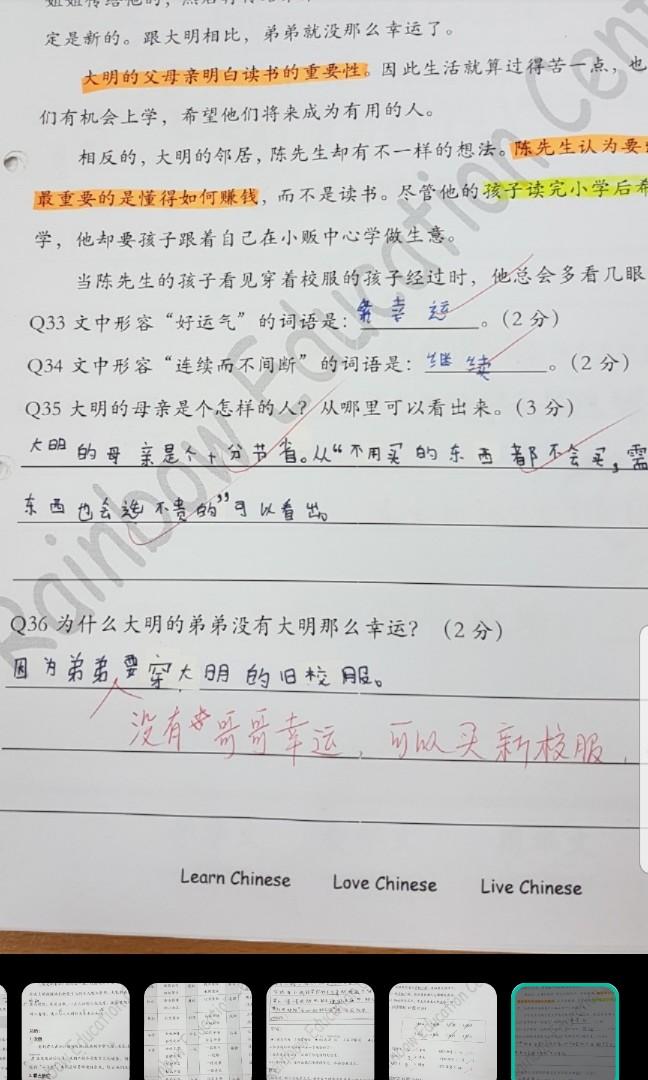 定是新的。跟大明相比，弟弟就没那么幸运了。
大明的父母亲明白读书的重要性。因此生活就算过得苦一点，也
们有机会上学，希望他们将来成为有用的人。
相反的，大明的邻居，陈先生却有不一样的想法。陈先生认为要
最重要的是懂得如何赚钱，而不是读书。尽管他的孩子读完小学后希
学，他却要孩子跟着自己在小贩中心学做生意。
当陈先生的孩子看见穿着校服的孩子经过时，他总会多看几眼
Q33 文中形容“好运气”的词语是：幸运。（2 分）
Q34 文中形容“连续而不间断”的词语是：继续。（2 分）
Q35 大明的母亲是个怎样的人？从哪里可以看出来。（3 分）
大明的母亲是个十分节省。从“不用买的东西都不会买，需
东西也会选不贵的”可以看出。
Q36 为什么大明的弟弟没有大明那么幸运？（2 分）
因为弟弟要穿大明的旧校服。
没有哥哥幸运，可以买新校服.
Learn Chinese Love Chinese Live Chinese
Rainbow Education Cent